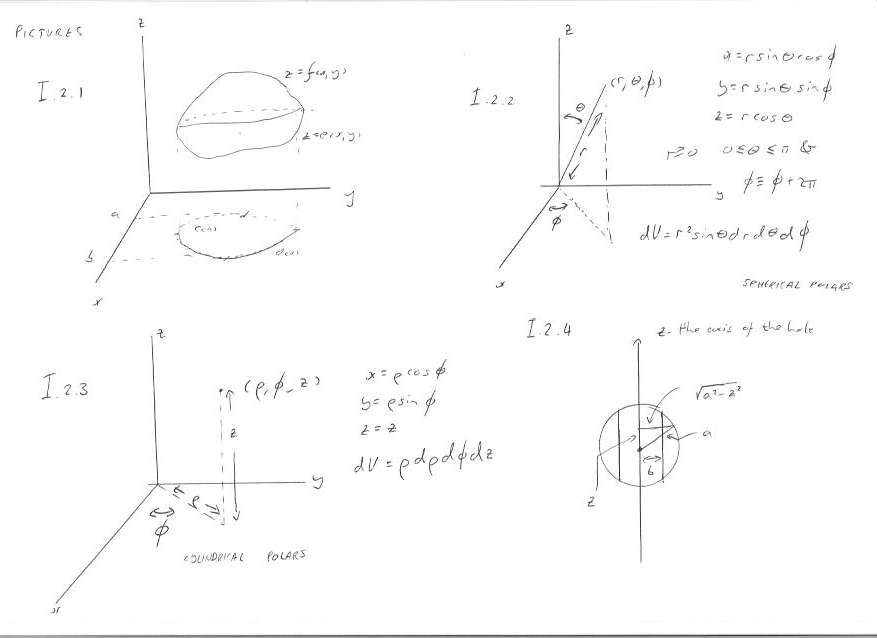 PICTURES
I.2.1
z
z=f(x,y)
z=e(x,y)
y
a
b
c(x)
d(x)
x
I.2.2
z
(r,θ,ϕ)
θ
r
y
ϕ
x
x=rsinθcosϕ
y=rsinθsinϕ
z=rcosθ
r≥0 0≤θ≤π &
ϕ≡ϕ+2π
dV=r²sinθdrdθdϕ
SPHERICAL POLARS
I.2.3
z
(ρ,ϕ,z)
z
y
ρ
ϕ
x
x=ρcosϕ
y=ρsinϕ
z=z
dV=ρdρdϕdz
CYLINDRICAL POLARS
I.2.4
z-the axis of the hole
√a²-z²
a
b
z